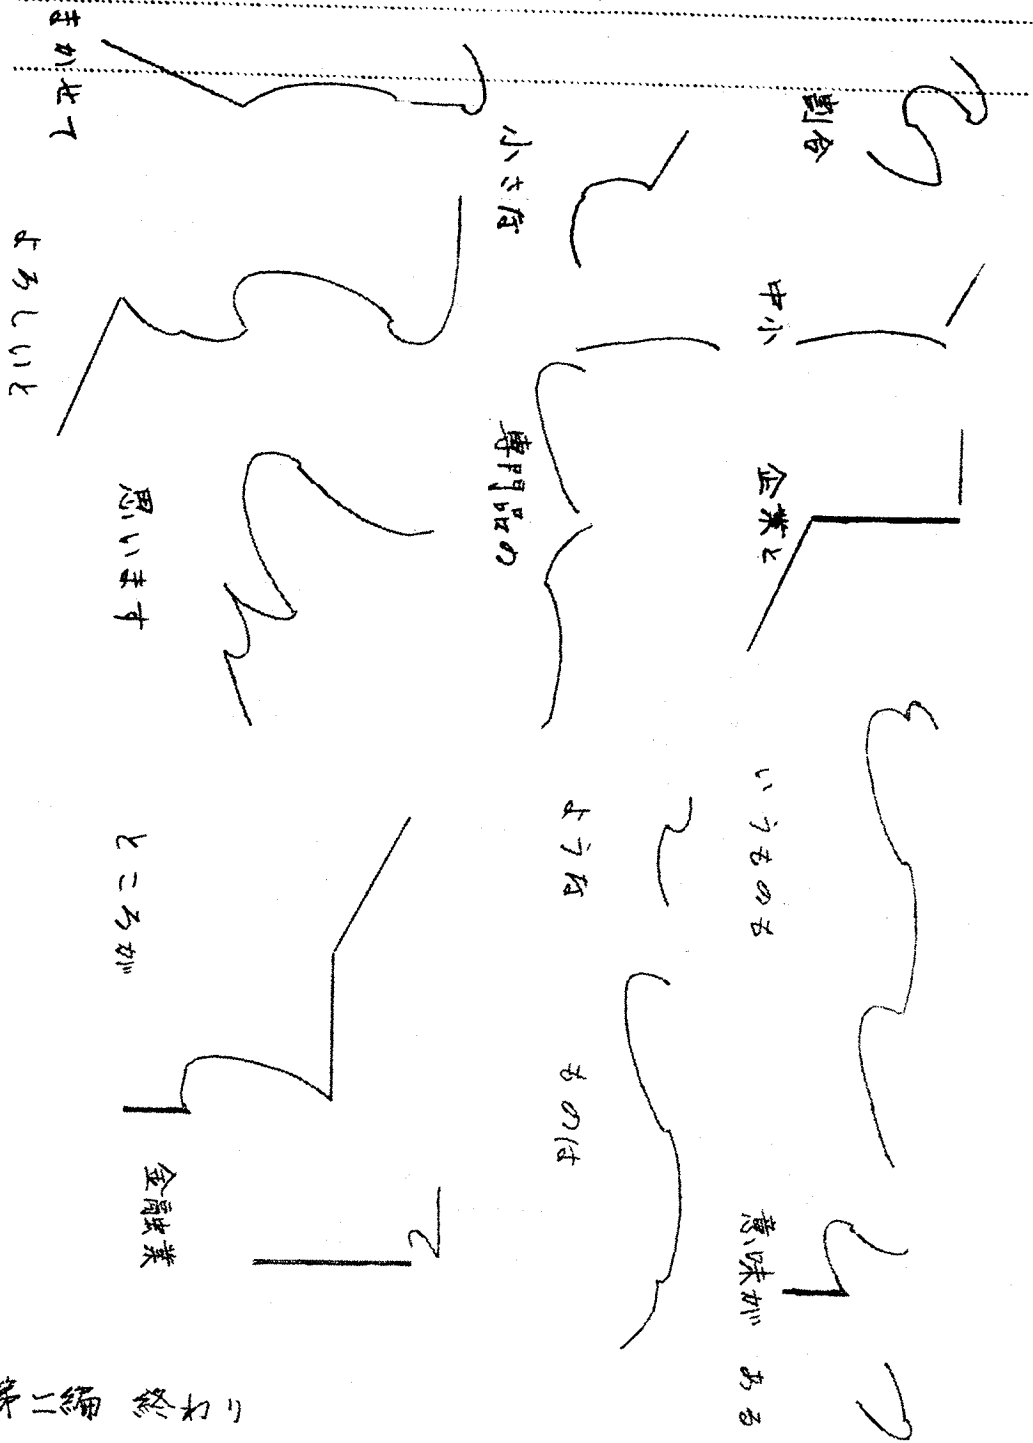 割合 中小 企業と いうものも 意味が ある
小さな 専門店の ような ものは
まかせて よろしいと 思います ところが 金融業
第二編 終わり